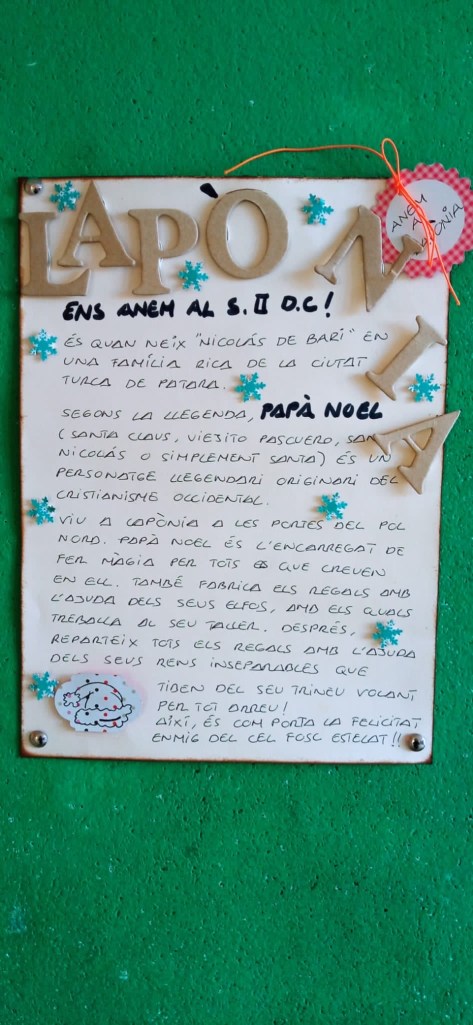 LAPÒNIA
ANEM
A
LAPÒNIA
ENS ANEM AL S. II D.C!
ÉS QUAN NEIX "NICOLÁS DE BARI" EN
UNA FAMÍLIA RICA DE LA CIUTAT
TURCA DE PATARA.
SEGONS LA LLEGENDA, PAPÀ NOEL
(SANTA CLAUS, VIEJITO PASCUERO, SAN
NICOLÁS O SIMPLEMENT SANTA) ÉS UN
PERSONATGE LLEGENDARI ORIGINARI DEL
CRISTIANISME OCCIDENTAL.
VIU A LAPÒNIA A LES PORTES DEL POL
NORD. PAPÀ NOEL ÉS L'ENCARREGAT DE
FER MÀGIA PER TOTS ES QUE CREUEN
EN ELL. TAMBÉ FABRICA ELS REGALS AMB
L'AJUDA DELS SEUS ELFOS, AMB ELS QUALS
TREBALLA AL SEU TALLER. DESPRÉS,
REPARTEIX TOTS ELS REGALS AMB L'AJUDA
DELS SEUS RENS INSEPARABLES QUE
TIBEN DEL SEU TRINEU VOLANT
PER TOT ARREU!
AIXÍ, ÉS COM PORTA LA FELICITAT
ENMIG DEL CEL FOSC ESTELAT!!